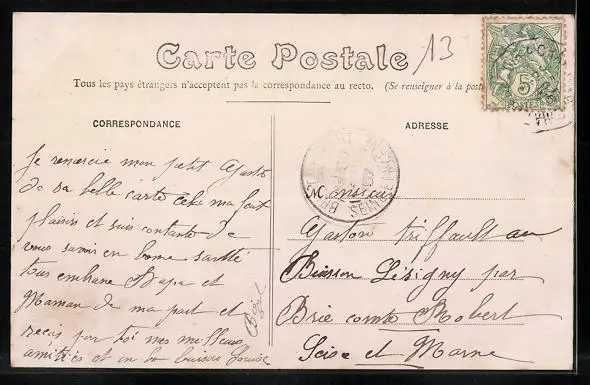 Carte Postale
13
Tous les pays étrangers n'acceptent pas la correspondance au recto. (Se renseigner à la poste
CORRESPONDANCE
Je remercie mon petit Gaston
de sa belle carte cela ma fait
plaisir et suis contante de
vous savoir en bonne santé
tous embrasse Papa et
Maman de ma part et
reçois par toi mes meilleurs
amitiés et un bon baiser Louise
ADRESSE
Monsieur
Gaston Triffault au
Buisson Lésigny par
Brie comte Robert
Seine et Marne
5
POSTES